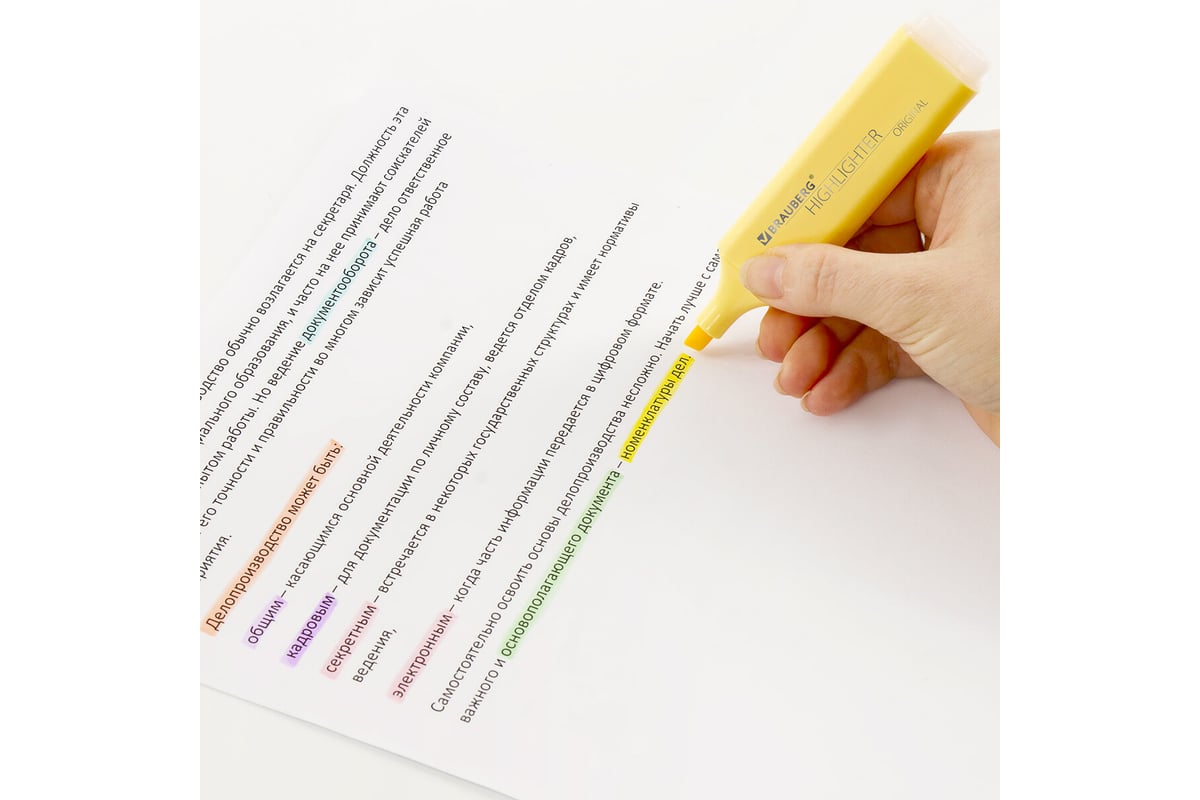 возлагается на секретаря. Должность эта
образования, и часто на нее принимают соискателей
работы. Но ведение документооборота – дело ответственное
его точности и правильности во многом зависит успешная работа
Делопроизводство может быть:
общим – касающимся основной деятельности компании,
кадровым – для документации по личному составу, ведется отделом кадров,
секретным – встречается в некоторых государственных структурах и имеет нормативы
ведения,
электронным – когда часть информации передается в цифровом формате.
Самостоятельно освоить основы делопроизводства несложно. Начать лучше с
важного и основополагающего документа – номенклатуры дел.
BRAUBERG®
HIGHLIGHTER
ORIGINAL